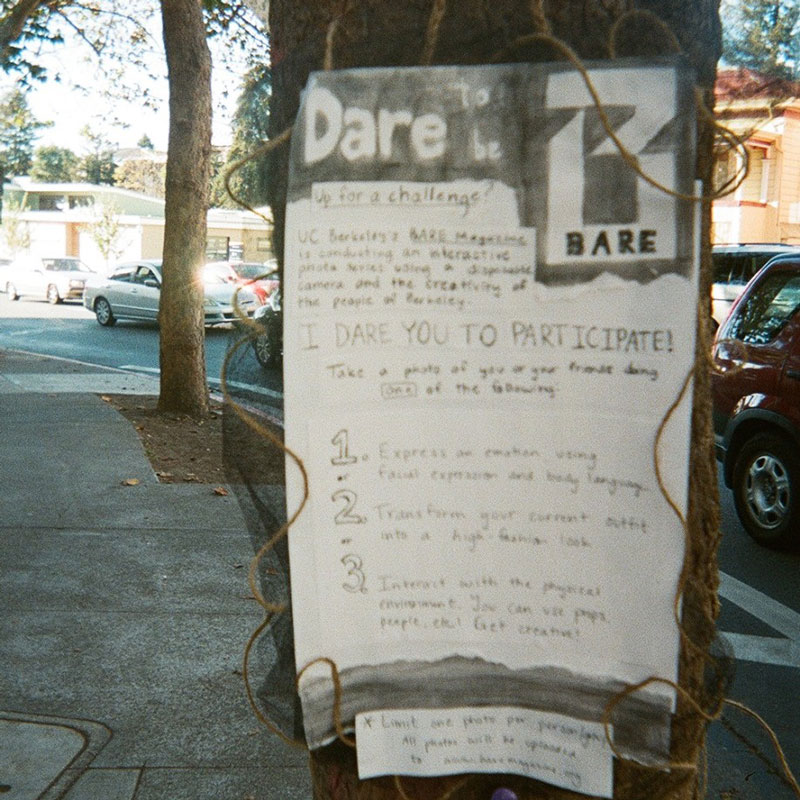 Dare to be
BARE
Up for a challenge?
UC Berkeley's BARE Magazine
is conducting an interactive
photo series using a disposable
camera and the creativity of
the people of Berkeley.
I DARE YOU TO PARTICIPATE!
Take a photo of you or your friends doing
one of the following:
1. Express an emotion using
facial expression and body language
or
2. Transform your current outfit
into a high-fashion look
or
3. Interact with the physical
environment. You can use props,
people, etc! Get creative!
* Limit one photo per person/
All photos will be uploaded
to www.baremagazine.org